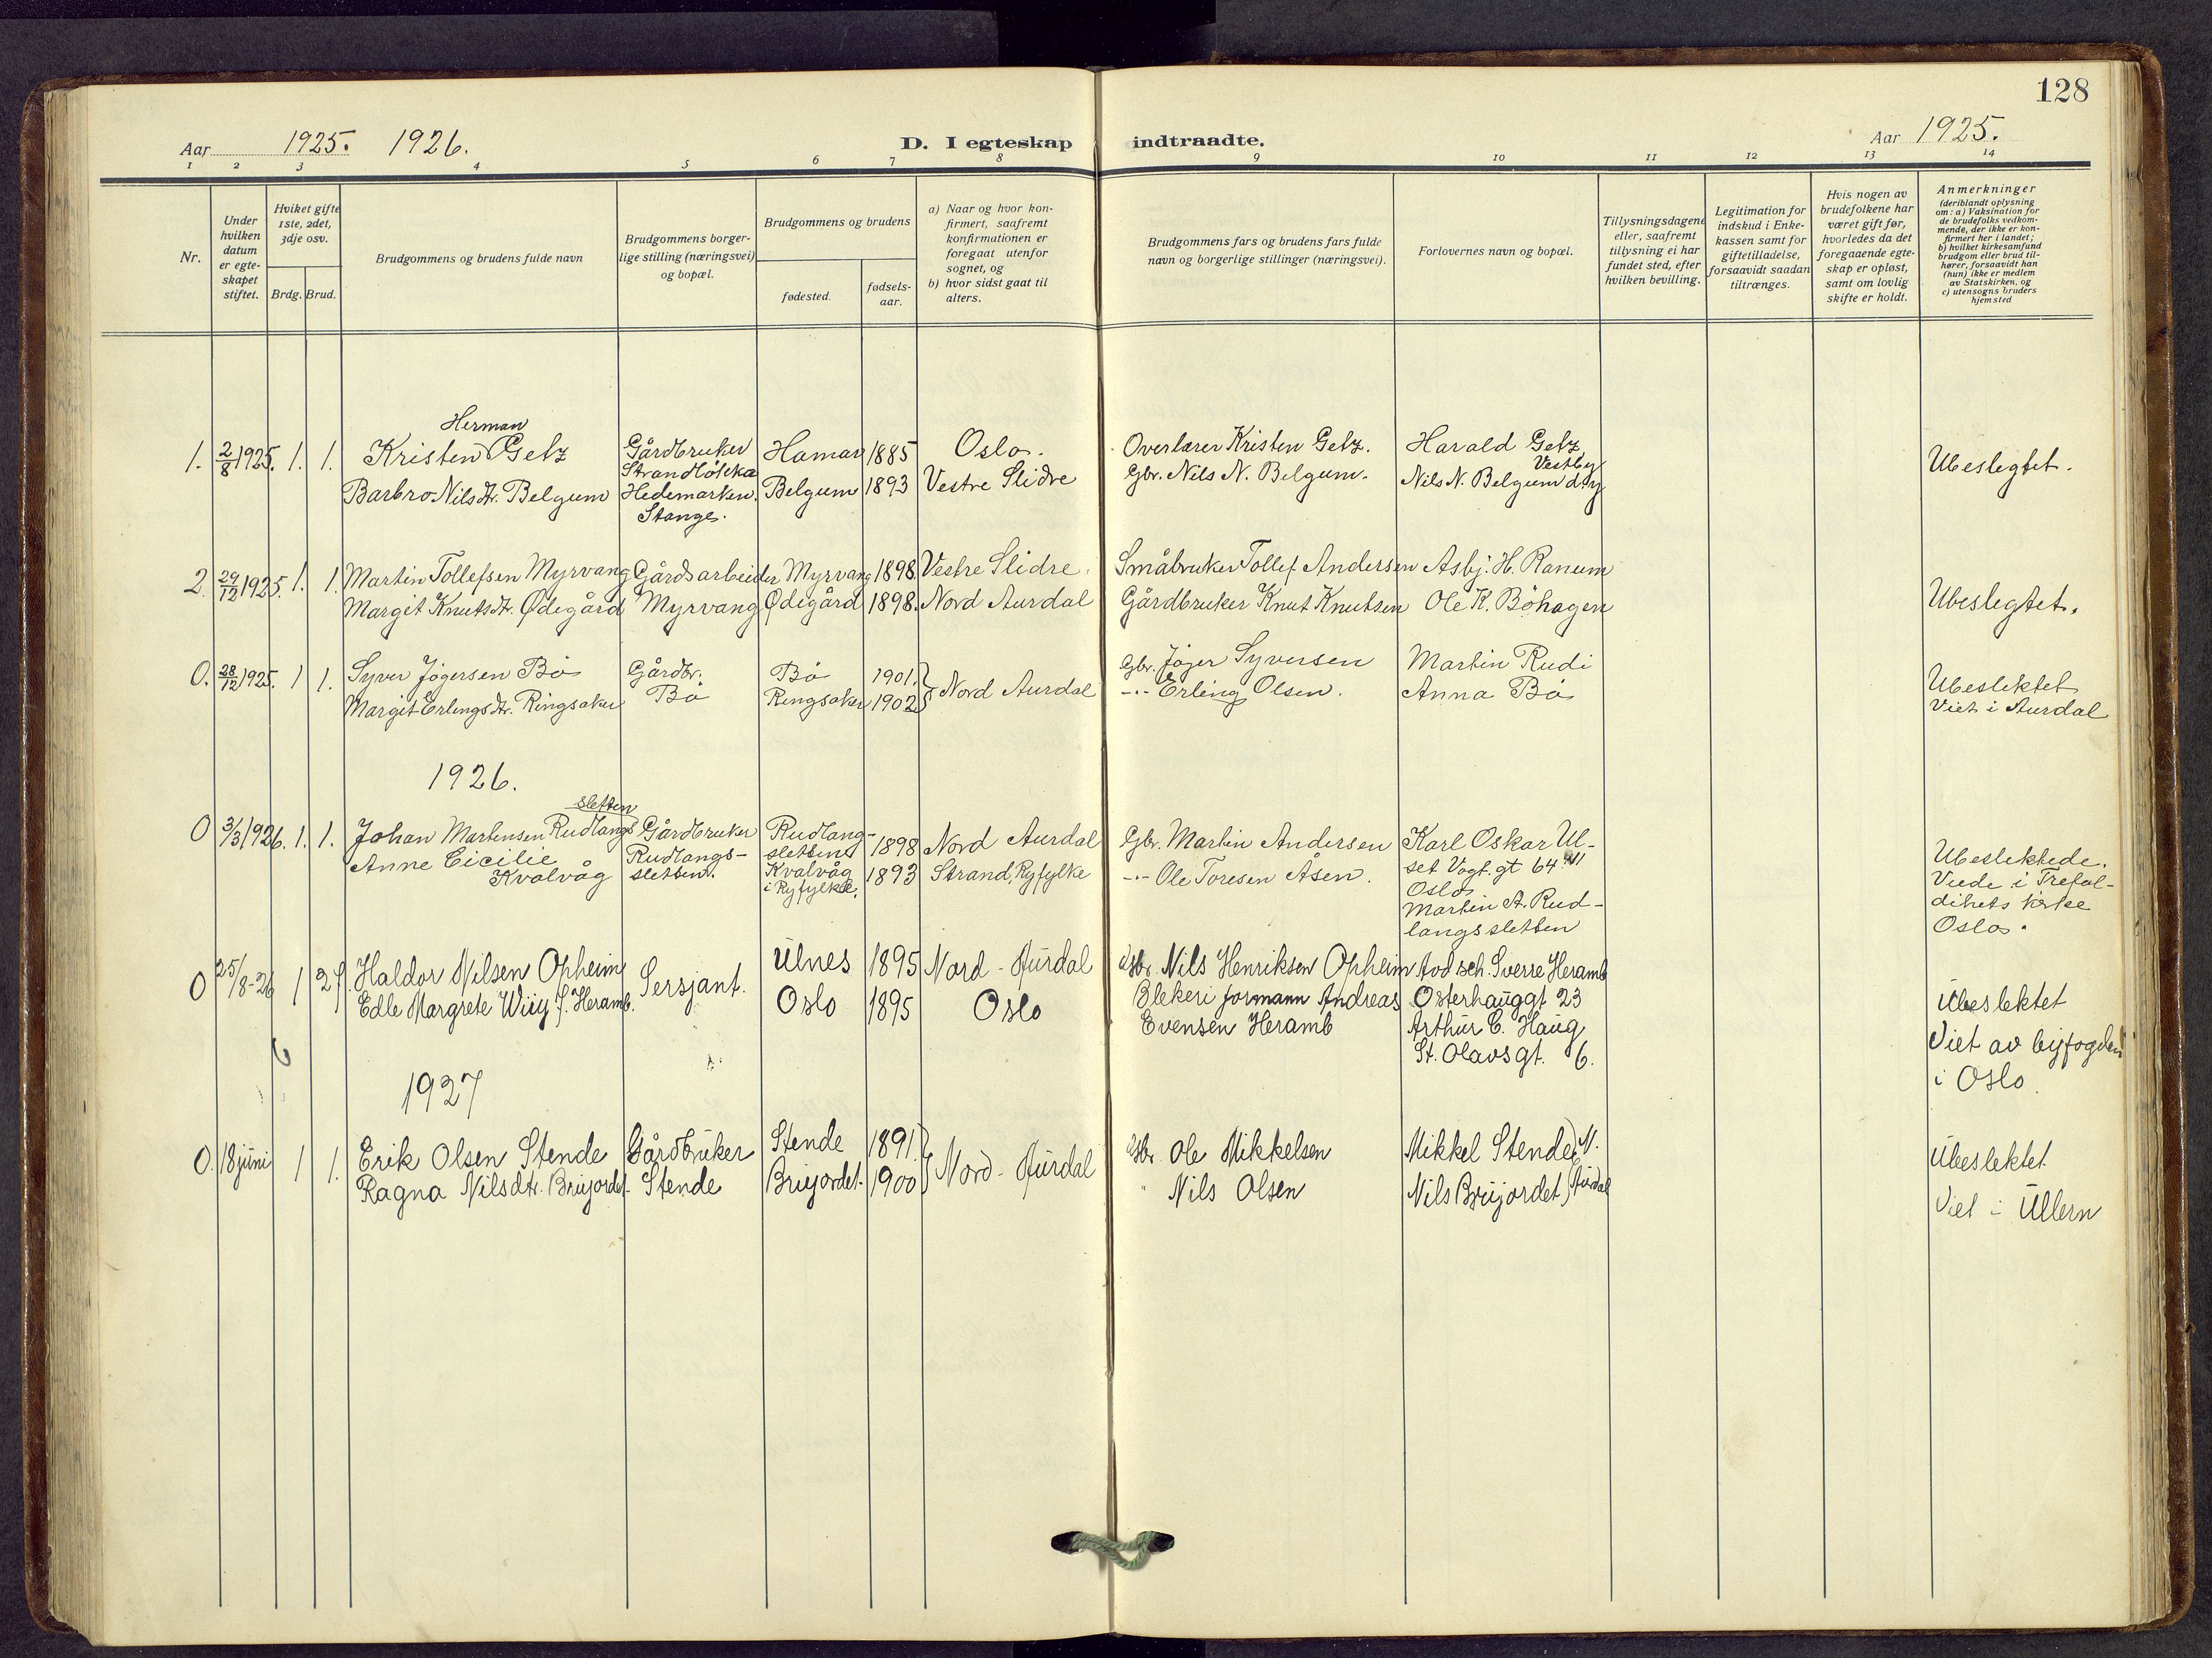 128
Aar 1925. 1926.
D. I egteskap indtraadte.
Aar 1925.
1 2 3 4 5 6 7 8 9 10 11 12 13 14
Nr.
Under hvilken datum er egte-skapet stiftet.
Hviket gifte 1ste, 2det, 3dje osv.
Brdg. Brud.
Brudgommens og brudens fulde navn
Brudgommens borger-lige stilling (næringsvei) og bopæl.
Brudgommens og brudens
fødested.
fødsels-aar.
a) Naar og hvor kon-firmert, saafremt konfirmationen er foregaat utenfor sognet, og
b) hvor sidst gaat til alters.
Brudgommens fars og brudens fars fulde navn og borgerlige stillinger (næringsvei).
Forlovernes navn og bopæl.
Tillysningsdagene eller, saafremt tillysning ei har fundet sted, efter hvilken bevilling.
Legitimation for indskud i Enke-kassen samt for giftetilladelse, forsaavidt saadan tiltrænges.
Hvis nogen av brudefolkene har været gift før, hvorledes da det foregaaende egte-skap er opløst, samt om lovlig skifte er holdt.
Anmerkninger
(deriblandt oplysning om: a) Vaksination for de brudefolks vedkom-mende, der ikke er kon-firmert her i landet;
b) hvilket kirkesamfund brudgom eller brud til-hører, forsaavidt han (hun) ikke er medlem av Statskirken, og
c) utensogns bruders hjemsted
Herman
1. 2/8 1925. 1. 1. Kristen Getz Gårdbruker Hamar 1885 Oslo. Overlærer Kristen Getz. Harald Getz
Strandløkka Vestby
Barbro Nilsdtr. Belgum Hedemarken. Belgum 1893 Vestre Slidre Gbr. Nils N. Belgum. Nils N. Belgum Ubeslegtet.
Stange.
2. 29/12 1925. 1. 1. Martin Tollefsen Myrvang Gårdsarbeider Myrvang 1898. Vestre Slidre. Småbruker Tollef Andersen Asbj. H. Ranum
Margit Knutsdtr. Ødegård Myrvang Ødegård 1898. Nord Aurdal Gårdbruker Knut Knutsen Ole K. Böhagen Ubeslegtet.
0. 28/12 1925. 1 1. Syver Jögersen Bö Gårdbr. Bö 1901. Nord Aurdal Gbr. Jöger Syversen Martin Rudi
Margit Erlingsdtr. Ringsaker Bö Ringsaker 1902 -"- Erling Olsen. Anna Bö Ubeslektet
Viet i Aurdal
1926.
sletten
0 3/3 1926. 1. 1. Johan Martensen Rudlangs Gårdbruker Rudlang-sletten 1898 Nord Aurdal Gbr. Martin Andersen Karl Oskar Ul-
Anne Cicilie Rudlangs- set Vogt. gt 64 III
Kvalvåg sletten. Kvalvåg i Ryfylke. 1893 Strand, Ryfylke -"- Ole Toresen Åsen. Oslo
Martin A. Rud-
langssletten
Ubeslektede.
Viede i Trefol-
dihets kirke
Oslo.
0 25/8-26 1 2 Haldor Nilsen Opheim Sersjant. Ulnes 1895 Nord-Aurdal Gbr. Nils Henriksen Opheim Sverre Heramb
Edle Margrete Wiig f. Heramb. Oslo 1895 Oslo Blekeri formann Andreas Osterhauggt 23
Evensen Heramb Arthur C. Haug
St. Olavs gt. 6.
Ubeslektet
Viet av byfogden
i Oslo.
1927
0. 18 juni 1 1. Erik Olsen Stende Gårdbruker Stende 1891. Nord-Aurdal Gbr. Ole Mikkelsen Mikkel Stende N.
Ragna Nilsdtr. Brujordet Stende Brujordet 1900 " Nils Olsen Nils Brujordet Aurdal
Ubeslektet
Viet i Ullern